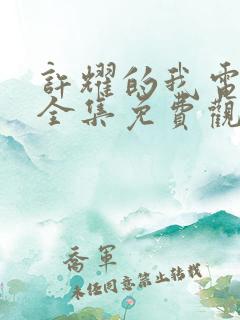 許耀的我電
全集免費觀
喬軍
未經同意禁止轉載